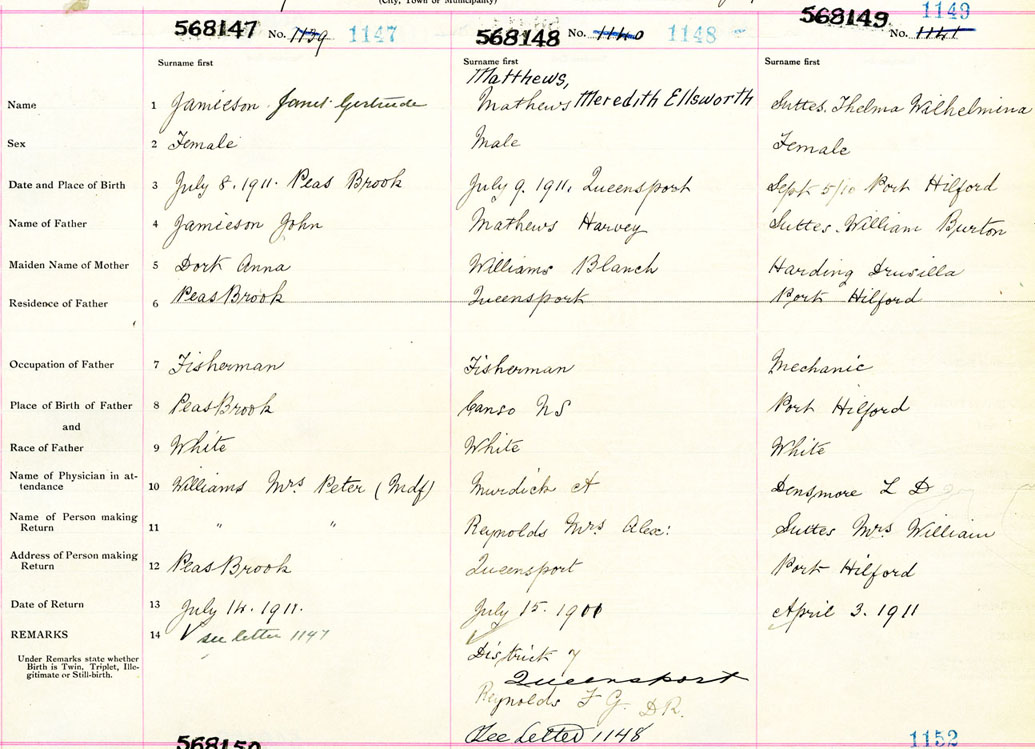 (City, Town or Municipality)
568147 No. 1139 1147
568148 No. 1140 1148
568149 No. 1141 1149
Surname first Surname first Surname first
Matthews,
Name 1 Jamieson Janet Gertrude Mathews Meredith Ellsworth Suttes. Thelma Wilhelmina
Sex 2 Female Male Female
Date and Place of Birth 3 July 8. 1911. Peas Brook July 9. 1911, Queensport Sept 5/10 Port Hilford
Name of Father 4 Jamieson John Mathews Harvey Suttes. William Burton
Maiden Name of Mother 5 Dork Anna Williams Blanch Harding Drusilla
Residence of Father 6 Peas Brook Queensport Port Hilford
Occupation of Father 7 Fisherman Fisherman Mechanic
Place of Birth of Father 8 Peas Brook Canso NS Port Hilford
and
Race of Father 9 White White White
Name of Physician in at-
tendance 10 Williams Mrs Peter (Mdf) Murdick A Densmore L D
Name of Person making
Return 11 " " Reynolds Mrs. Alex: Suttes Mrs William
Address of Person making
Return 12 Peas Brook Queensport Port Hilford
Date of Return 13 July 14. 1911. July 15. 1901 April 3. 1911
REMARKS 14 see letter 1147
Under Remarks state whether
Birth is Twin, Triplet, Ille-
gitimate or Still-birth.
District 7
Queensport
Reynolds F G. DR.
See Letter 1148
568150 1152